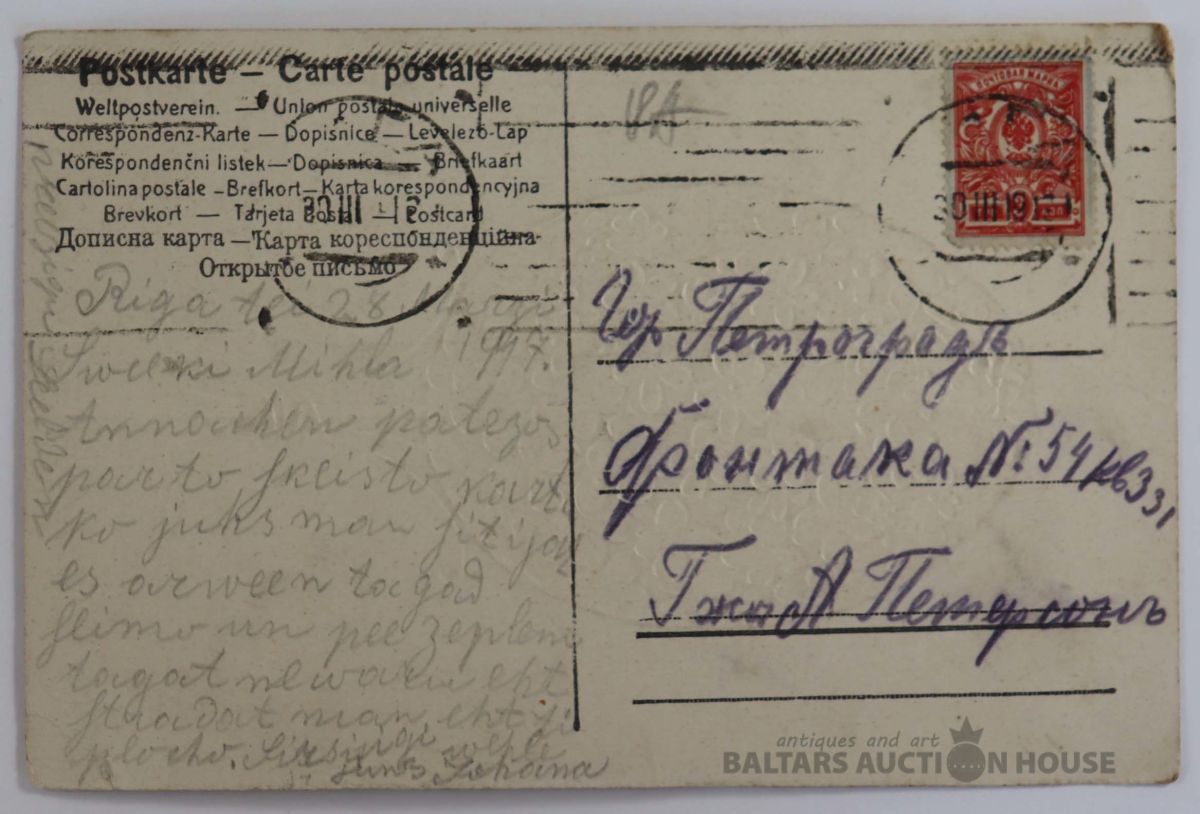 Postkarte – Carte postale
Weltpostverein. — Union postale universelle
Correspondenz-Karte — Dopisnice — Levelező-Lap
Korespondenčni listek — Dopisnica — Briefkaart
Cartolina postale – Brefkort – Karta korespondencyjna
Brevkort — Tarjeta Postal — Postcard
Дописна карта — Карта кореспонденційна
Открытое письмо
30 III 19
ПОЧТОВАЯ МАРКА
Riga tei 28 Marzi
1917.
Sweeki Mihla
Annachen patezos
par to skeisto karti
ko juhs man
es arween tagad
slimo un pee
tagat newaru eht
stradat man
plocho. Sirsnigi
juhs Johana
Гор Петроградъ
Фонтака № 54 кв 331
Гжа А Петерсонъ
antiques and art
BALTARS AUCTION HOUSE